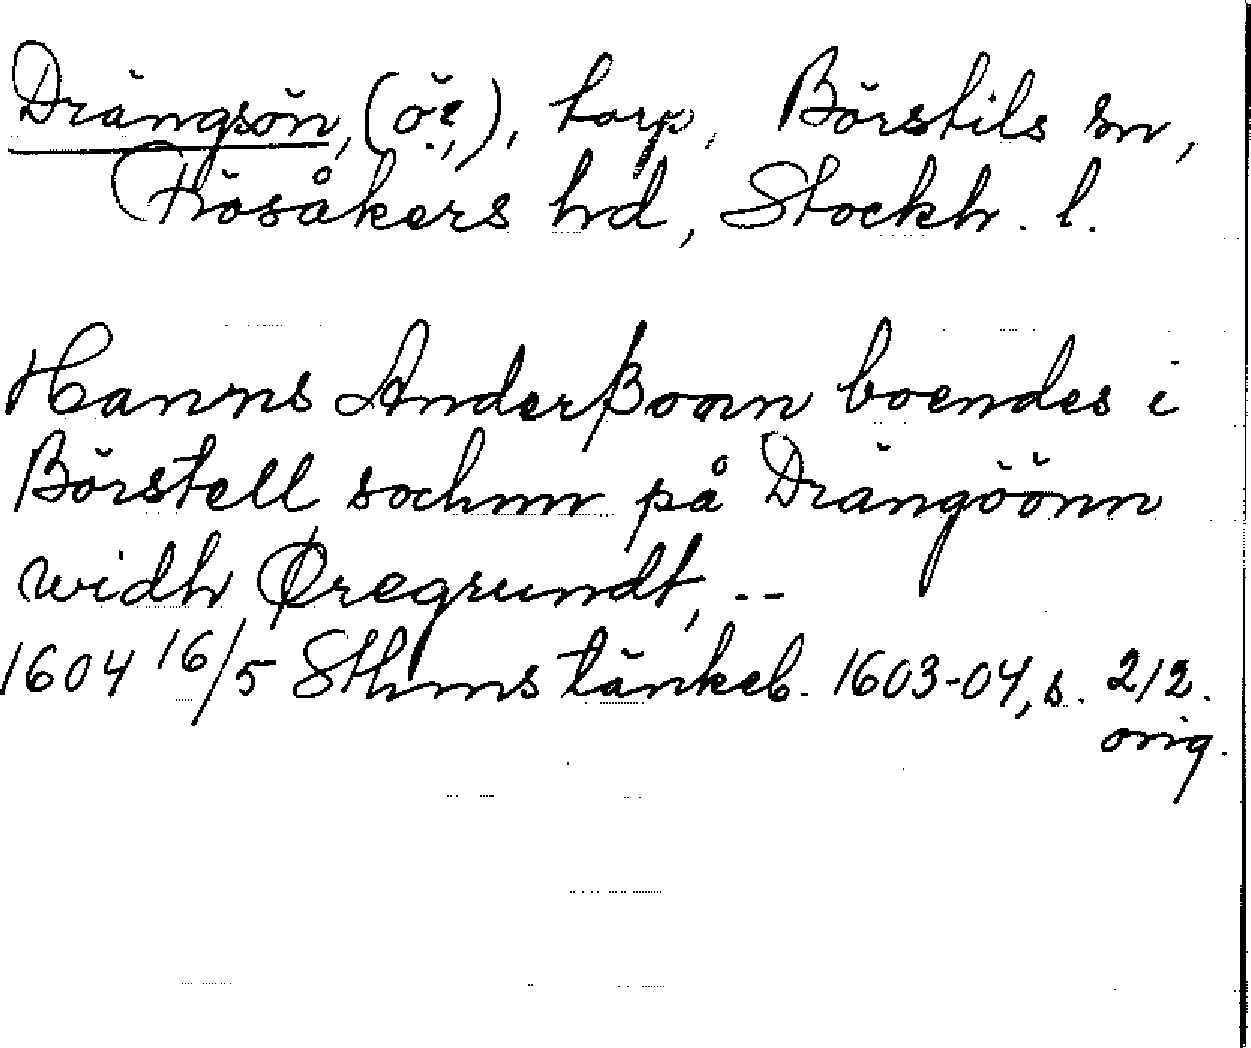 Drängsön, (ö?), torp, Börstils sn,
Frösåkers hd, Stockh. l.
Hanns Anderßonn boendes i
Börstell sochnn på Drängöönn
widh Øregrundt, --
1604 16/5 Sthms tänkeb. 1603-04, s. 212.
orig.